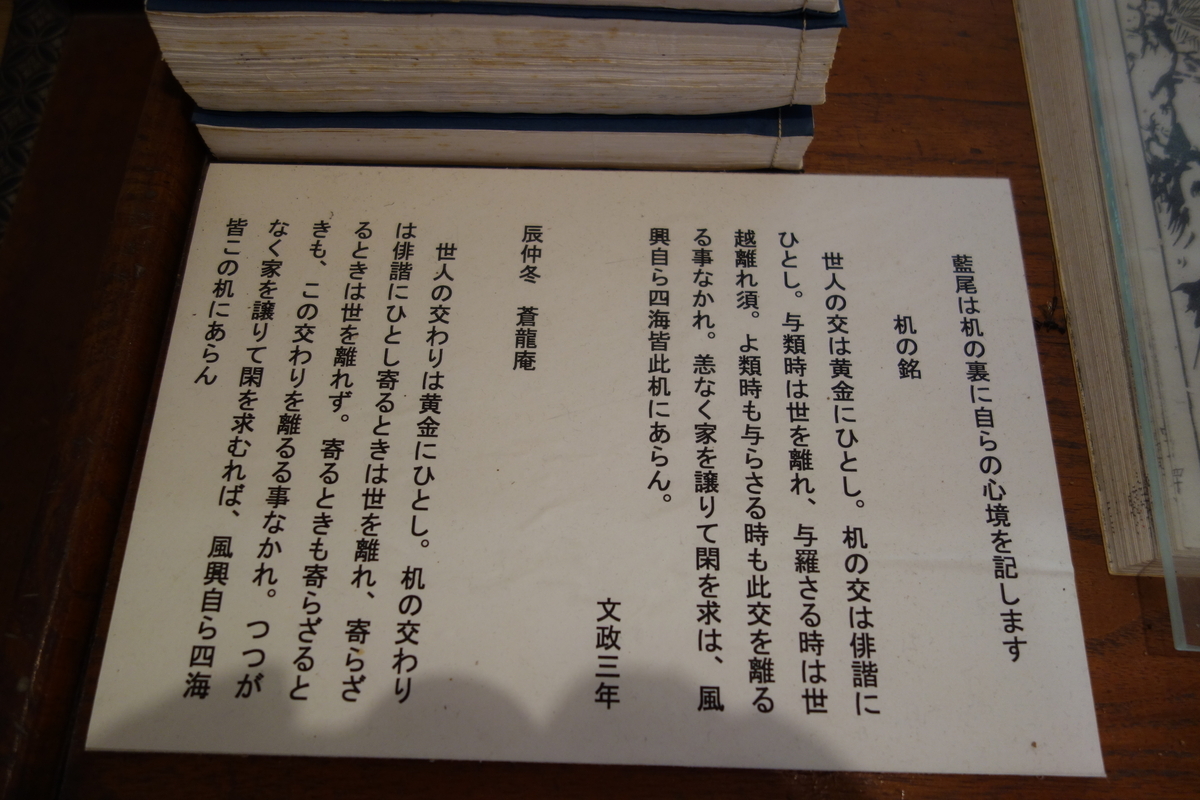 藍尾は机の裏に自らの心境を記します
机の銘
世人の交は黄金にひとし。机の交は俳諧に
ひとし。与類時は世を離れ、与羅さる時は世
越離れ須。よ類時も与らさる時も此交を離る
る事なかれ。恙なく家を譲りて閑を求は、風
興自ら四海皆此机にあらん。
文政三年
辰仲冬　蒼龍庵
世人の交わりは黄金にひとし。机の交わり
は俳諧にひとし寄るときは世を離れ、寄らざ
るときは世を離れず。寄るときも寄らざると
きも、この交わりを離るる事なかれ。つつが
なく家を譲りて閑を求むれば、風興自ら四海
皆この机にあらん